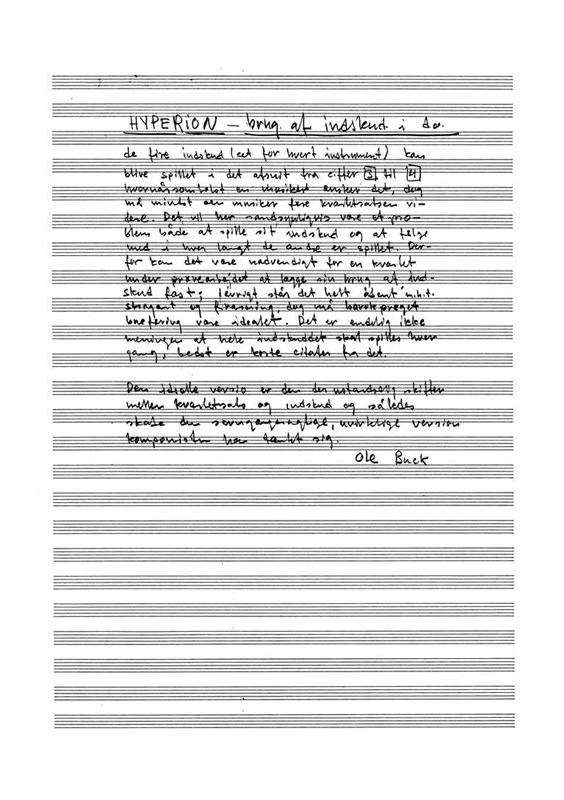 HYPERION – brug af indskud i do.
de fire indskud (et for hvert instrument) kan
blive spillet i det afsnit fra ciffer 3 til 4
hvornårsomhelst en musiker ønsker det, dog
må mindst en musiker føre kvartetsatsen vi-
dere. Det vil her sandsynligvis være et pro-
blem både at spille sit indskud og at følge
med i hvor langt de andre er spillet. Der-
for kan det være nødvendigt for en kvartet
under prøvearbejdet at lægge sin brug af ind-
skud fast; iøvrigt står det helt åbent m.h.t.
strøgart og frasering dog må barokpræget
bueføring være idealet. Det er endelig ikke
meningen at hele indskuddet skal spilles hver
gang, bedst er korte citater fra det.
Den idielle versio er den der ustandselig skifter
mellem kvartetsats og indskud og således
skabe den uvirklige version
komponisten har tænkt sig.
Ole Buck